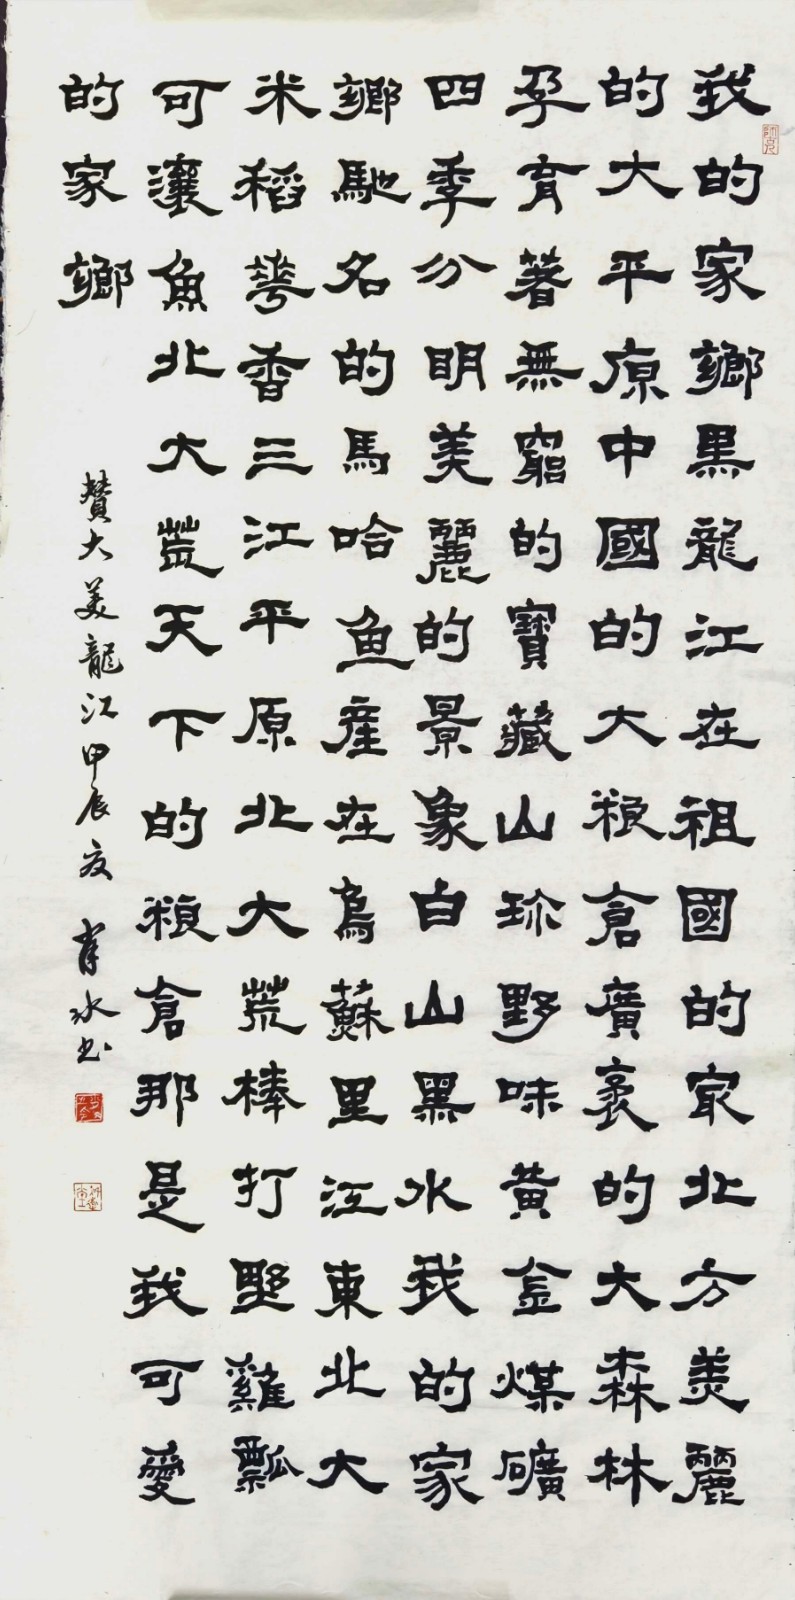 我的家鄉黑龍江在祖國的冣北方美麗
的大平原中國的大粮倉廣袤的大森林
孕育著無窮的寶藏山珍野味黄金煤礦
四季分明美麗的景象白山黑水我的家
鄉馳名的馬哈鱼産在烏蘇里江東北大
米稻華香三江平原北大荒棒打野雞瓢
可瀼魚北大荒天下的粮倉那是我可愛
的家鄉
贊大美龍江甲辰夏肖冰书